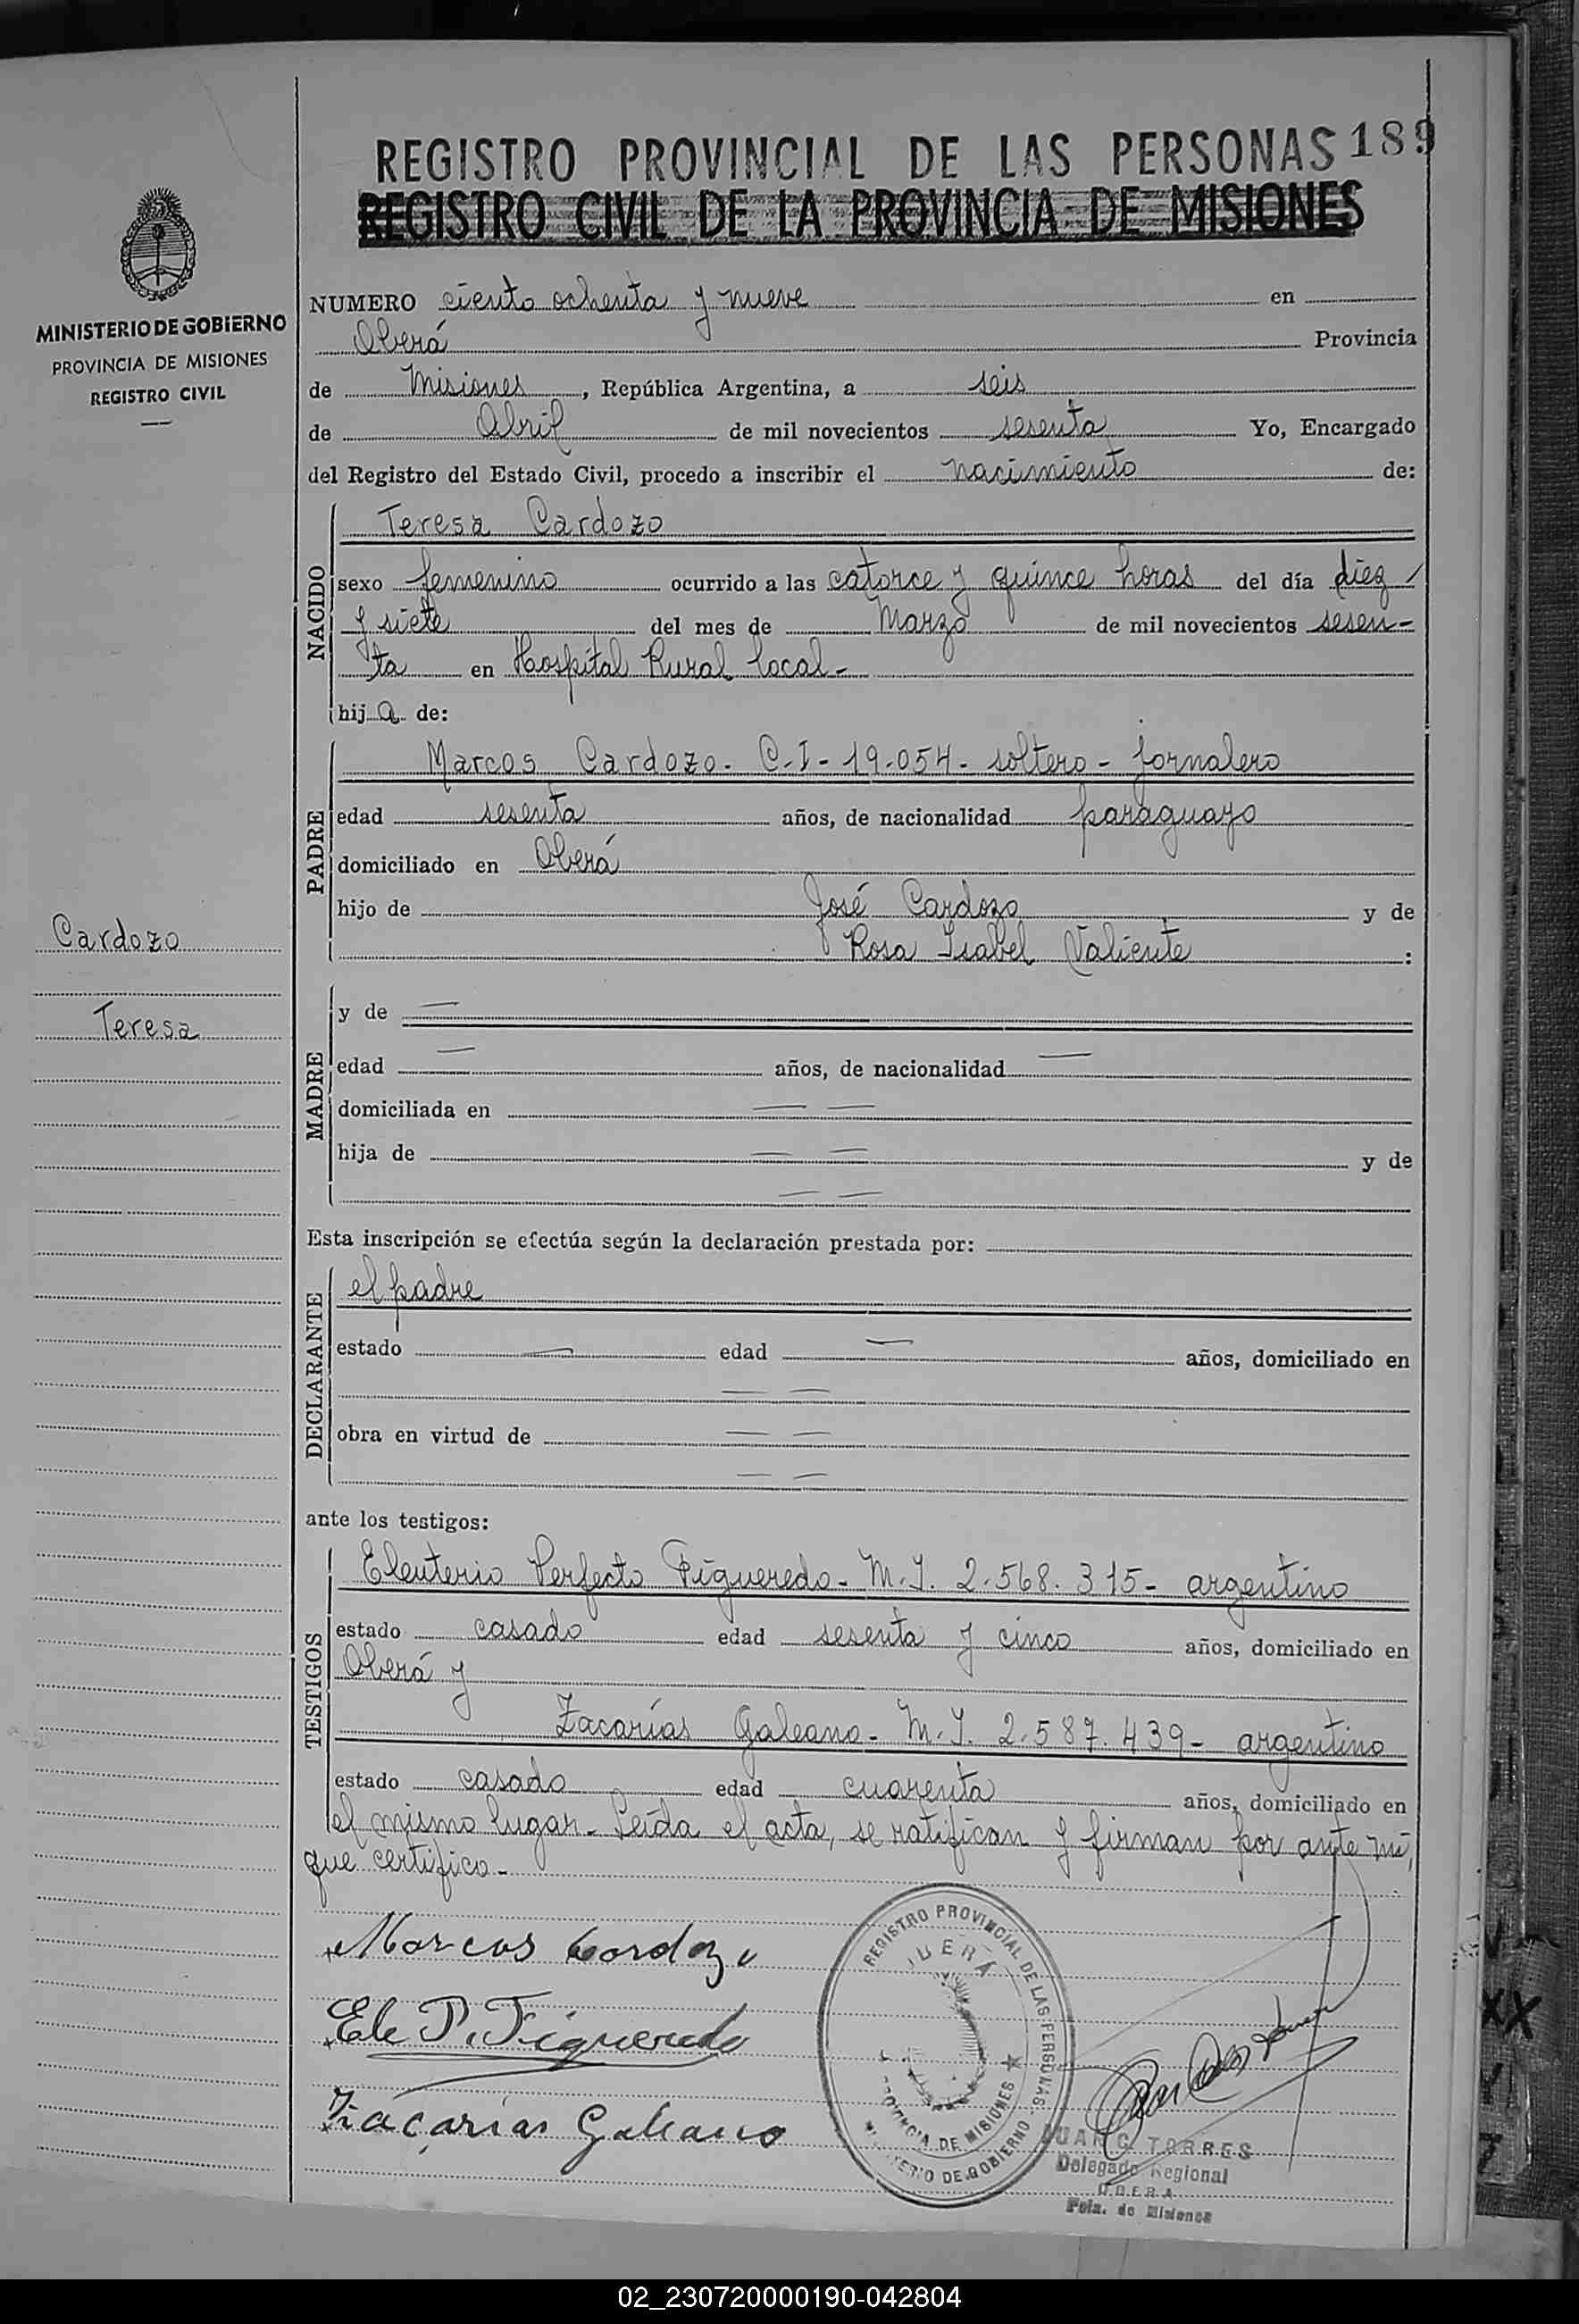 REGISTRO PROVINCIAL DE LAS PERSONAS 189
REGISTRO CIVIL DE LA PROVINCIA DE MISIONES
MINISTERIO DE GOBIERNO
PROVINCIA DE MISIONES
REGISTRO CIVIL
NUMERO ciento ochenta y nueve en
Oberá Provincia
de Misiones, República Argentina, a seis
de Abril de mil novecientos sesenta Yo, Encargado
del Registro del Estado Civil, procedo a inscribir el nacimiento de:
NACIDO
Teresa Cardozo
sexo femenino ocurrido a las catorce y quince horas del día diez
y siete del mes de Marzo de mil novecientos sesen-
ta en Hospital Rural local-
hija de:
PADRE
Marcos Cardozo- C.I- 19.054- soltero- jornalero
edad sesenta años, de nacionalidad paraguayo
domiciliado en Oberá
hijo de José Cardozo y de
Rosa Isabel Valiente :
Cardozo
Teresa
MADRE
y de —
edad — años, de nacionalidad —
domiciliada en — —
hija de — — y de
— —
Esta inscripción se efectúa según la declaración prestada por:
DECLARANTE
el padre
estado — edad — años, domiciliado en
— —
obra en virtud de — —
— —
ante los testigos:
TESTIGOS
Eleuterio Perfecto Figueredo- M.I. 2.568.315- argentino
estado casado edad sesenta y cinco años, domiciliado en
Oberá y
Zacarías Galeano- M.I. 2.587.439- argentino
estado casado edad cuarenta años, domiciliado en
el mismo lugar- Leída el acta, se ratifican y firman por ante mí,
que certifico-
Marcos Cardozo
Ele P. Figueredo
Zacarias Galeano
REGISTRO PROVINCIAL DE LAS PERSONAS
OBERA
PROVINCIA DE MISIONES
MINISTERIO DE GOBIERNO
JUAN C. TORRES
Delegado Regional
OBERA
Pcia. de Misiones
02_230720000190-042804